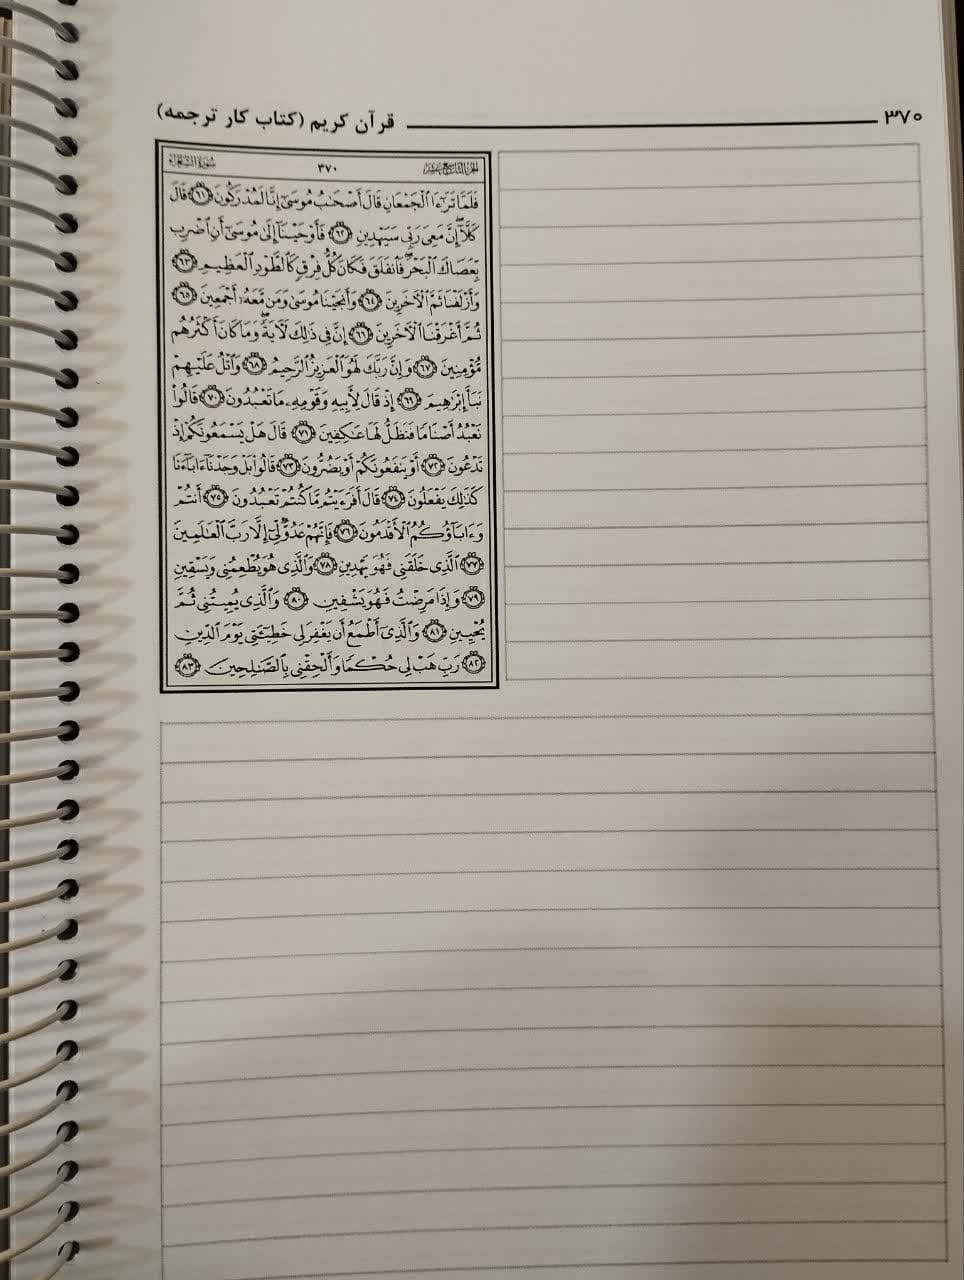 ۳۷۰
قرآن کریم (کتاب کار ترجمه)
الجزء التاسع عشر
۳۷۰
سورة الشعراء
فَلَمَّا تَرَٰٓءَا ٱلۡجَمۡعَانِ قَالَ أَصۡحَٰبُ مُوسَىٰٓ إِنَّا لَمُدۡرَكُونَ ٦١ قَالَ
كَلَّآۖ إِنَّ مَعِيَ رَبِّي سَيَهۡدِينِ ٦٢ فَأَوۡحَيۡنَآ إِلَىٰ مُوسَىٰٓ أَنِ ٱضۡرِب
بِّعَصَاكَ ٱلۡبَحۡرَۖ فَٱنفَلَقَ فَكَانَ كُلُّ فِرۡقٖ كَٱلطَّوۡدِ ٱلۡعَظِيمِ ٦٣
وَأَزۡلَفۡنَا ثَمَّ ٱلۡأٓخَرِينَ ٦٤ وَأَنجَيۡنَا مُوسَىٰ وَمَن مَّعَهُۥٓ أَجۡمَعِينَ ٦٥
ثُمَّ أَغۡرَقۡنَا ٱلۡأٓخَرِينَ ٦٦ إِنَّ فِي ذَٰلِكَ لَأٓيَةٗۖ وَمَا كَانَ أَكۡثَرُهُم
مُّؤۡمِنِينَ ٦٧ وَإِنَّ رَبَّكَ لَهُوَ ٱلۡعَزِيزُ ٱلرَّحِيمُ ٦٨ وَٱتۡلُ عَلَيۡهِمۡ
نَبَأَ إِبۡرَٰهِيمَ ٦٩ إِذۡ قَالَ لِأَبِيهِ وَقَوۡمِهِۦ مَا تَعۡبُدُونَ ٧٠ قَالُواْ
نَعۡبُدُ أَصۡنَامٗا فَنَظَلُّ لَهَا عَٰكِفِينَ ٧١ قَالَ هَلۡ يَسۡمَعُونَكُمۡ إِذۡ
تَدۡعُونَ ٧٢ أَوۡ يَنفَعُونَكُمۡ أَوۡ يَضُرُّونَ ٧٣ قَالُواْ بَلۡ وَجَدۡنَآ ءَابَآءَنَا
كَذَٰلِكَ يَفۡعَلُونَ ٧٤ قَالَ أَفَرَءَيۡتُم مَّا كُنتُمۡ تَعۡبُدُونَ ٧٥ أَنتُمۡ
وَءَابَآؤُكُمُ ٱلۡأَقۡدَمُونَ ٧٦ فَإِنَّهُمۡ عَدُوّٞ لِّيٓ إِلَّا رَبَّ ٱلۡعَٰلَمِينَ
٧٧ ٱلَّذِي خَلَقَنِي فَهُوَ يَهۡدِينِ ٧٨ وَٱلَّذِي هُوَ يُطۡعِمُنِي وَيَسۡقِينِ
٧٩ وَإِذَا مَرِضۡتُ فَهُوَ يَشۡفِينِ ٨٠ وَٱلَّذِي يُمِيتُنِي ثُمَّ
يُحۡيِينِ ٨١ وَٱلَّذِيٓ أَطۡمَعُ أَن يَغۡفِرَ لِي خَطِيٓـَٔتِي يَوۡمَ ٱلدِّينِ
٨٢ رَبِّ هَبۡ لِي حُكۡمٗا وَأَلۡحِقۡنِي بِٱلصَّٰلِحِينَ ٨٣